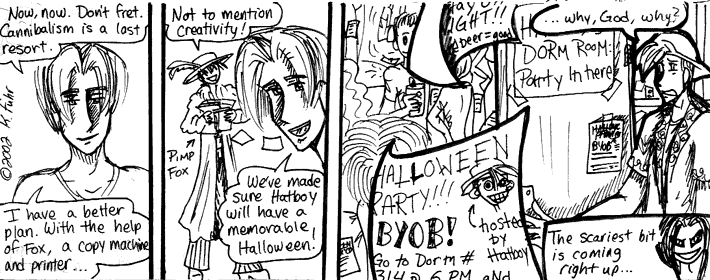 Now, now. Don't fret.
Cannibalism is a last
resort.
© 2002 K. Fuhr
I have a better
plan. With the help
of Fox, a copy machine
and printer...
Not to mention
creativity!
PIMP
FOX
We've made
sure Hatboy
will have a
memorable
Halloween!
beer = good
DORM ROOM:
Party In here
...why, God, why?
BYOB
HALLOWEEN
PARTY!!!!
BYOB!
hosted
by
Hatboy
Go to Dorm #
314 @ 6 PM and
The scariest bit
is coming
right up...